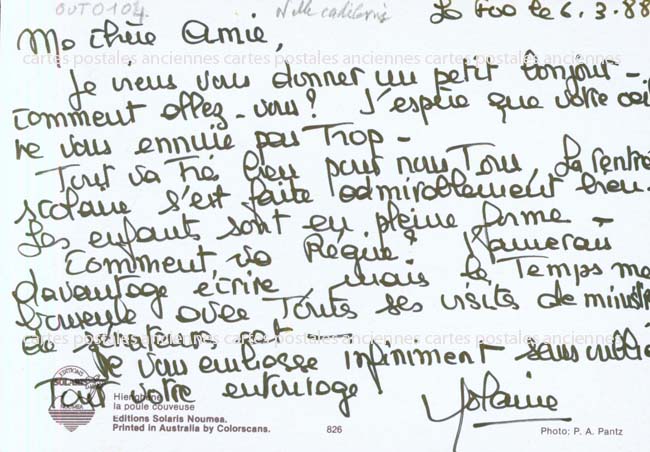 OUTO104 Nlle calédonie
La Foa le 6.3.88
Ma chère Amie,
cartes postales anciennes cartes postales anciennes cartes postales anciennes
Je viens vous donner un petit bonjour -
Comment allez-vous? J'espère que votre oeil
ne vous ennuie pas Trop -
Tout va Très bien pour nous Tous, La rentrée
scolaire s'est faite admirablement bien.
Les enfants sont en pleine forme -
Comment va Régine? J'aimerais
davantage écrire, mais le Temps me
bouscule avec Toutes ses visites de ministres
de sénateurs ect -
cartes postales anciennes cartes postales anciennes cartes postales anciennes
Je vous embrasse infiniment sans oublier
Tout votre entourage
Yolaine
EDITIONS
SOLARIS
NOUMEA
Hienghène
la poule couveuse
Editions Solaris Noumea.
Printed in Australia by Colorscans.
826
Photo: P. A. Pantz